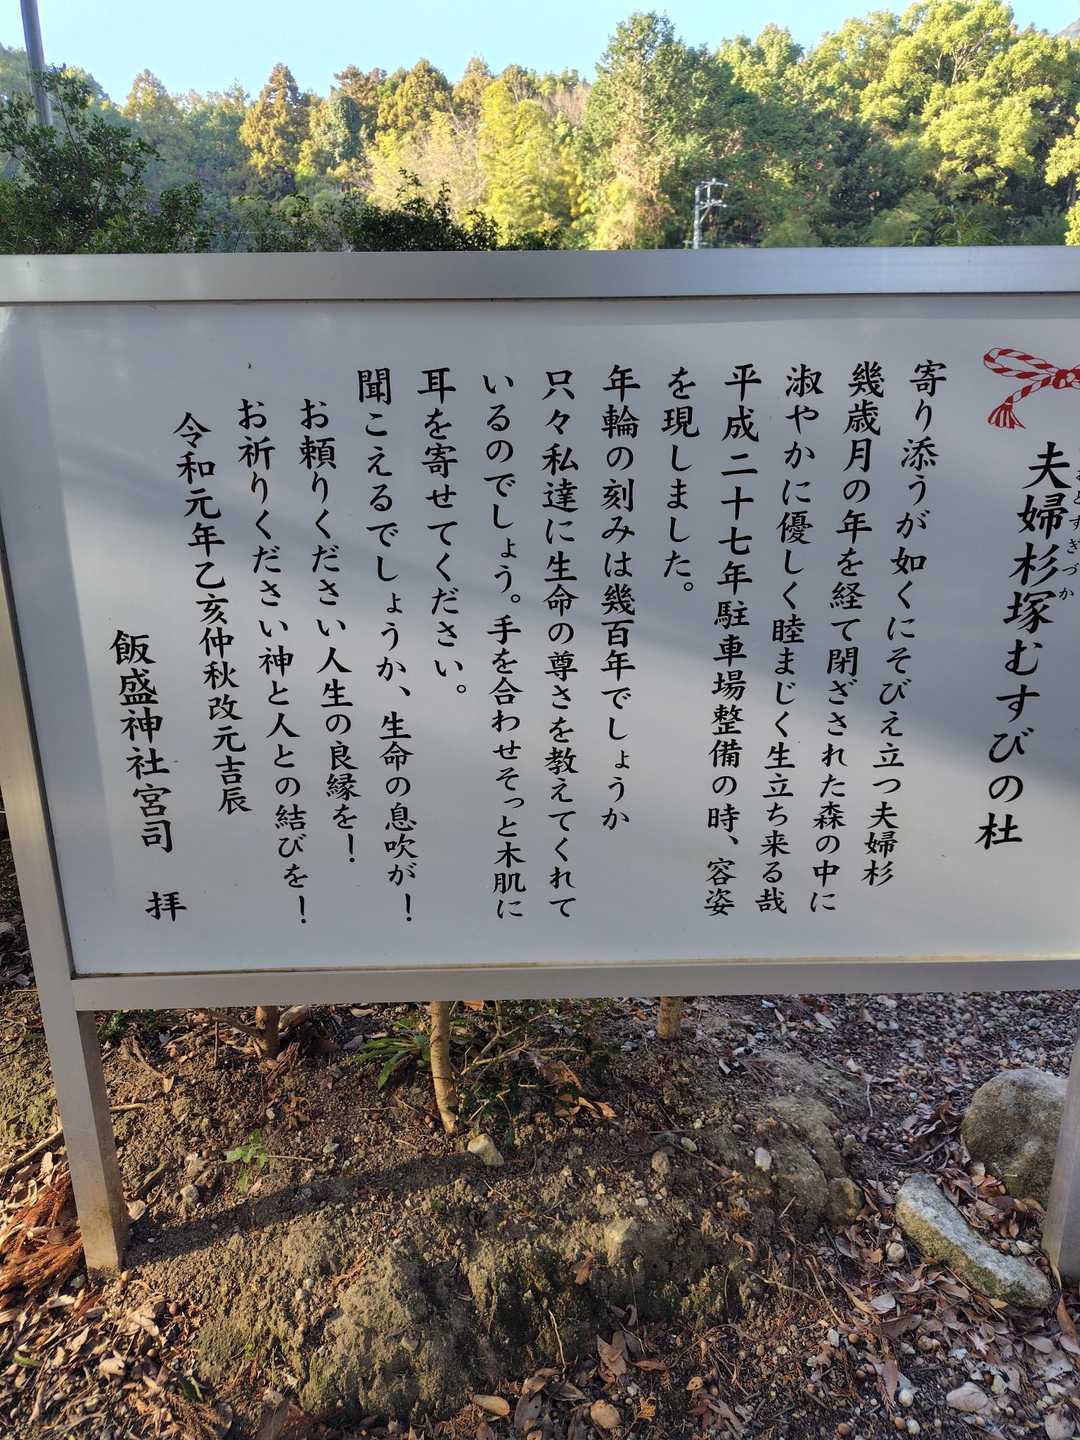 夫婦杉塚むすびの杜
寄り添うが如くにそびえ立つ夫婦杉
幾歳月の年を経て閉ざされた森の中に
淑やかに優しく睦まじく生立ち来る哉
平成二十七年駐車場整備の時、容姿
を現しました。
年輪の刻みは幾百年でしょうか
只々私達に生命の尊さを教えてくれて
いるのでしょう。手を合わせそっと木肌に
耳を寄せてください。
聞こえるでしょうか、生命の息吹が！
お頼りください人生の良縁を！
お祈りください神と人との結びを！
令和元年乙亥仲秋改元吉辰
飯盛神社宮司　拝